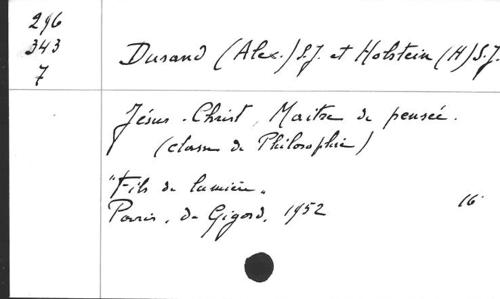 296
343
7
Durand (Alex.) S.J. et Holstein (H) S.J.
Jésus-Christ, Maître de pensée.
(classe de Philosophie)
"Fils de lumière"
Paris, de Gigord, 1952
16°